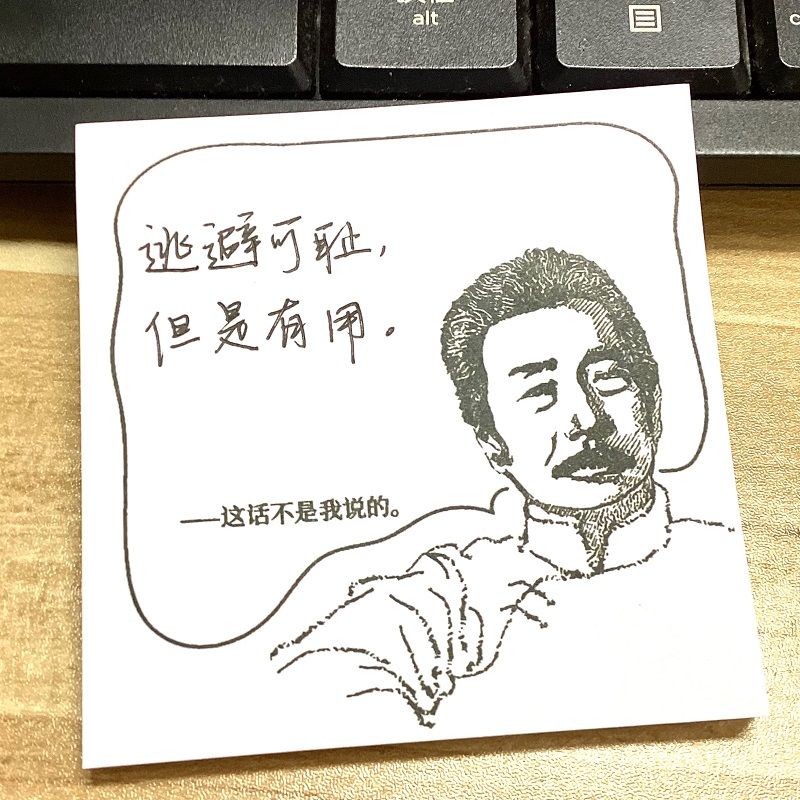 alt
逃避可耻,
但是有用。
——这话不是我说的。